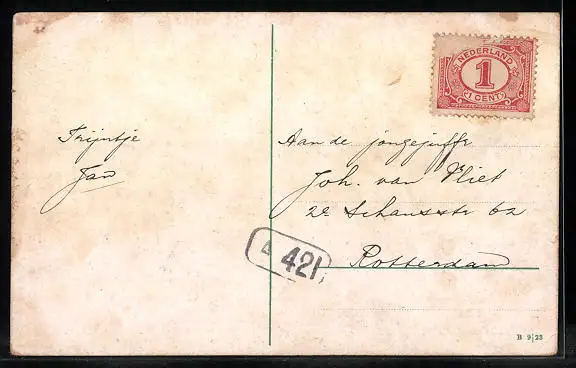 Trijntje
Jan
NEDERLAND
1
1 CENT
Aan de jongejuffr
Joh. van Vliet
2e Schansstr 62
Rotterdam
421
B 9|23